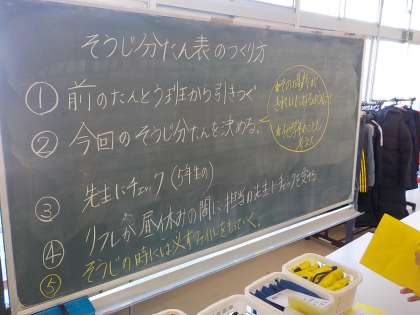 そうじ分たん表のつくり方
① 前のたんとう班から引きつぐ
② 今回のそうじ分たんを決める。
③ 先生にチェック(5年生の)
④ リフレが昼休みの間に担当の先生にチェックを受ける
⑤ そうじの時には必ずファイルをもっていく。